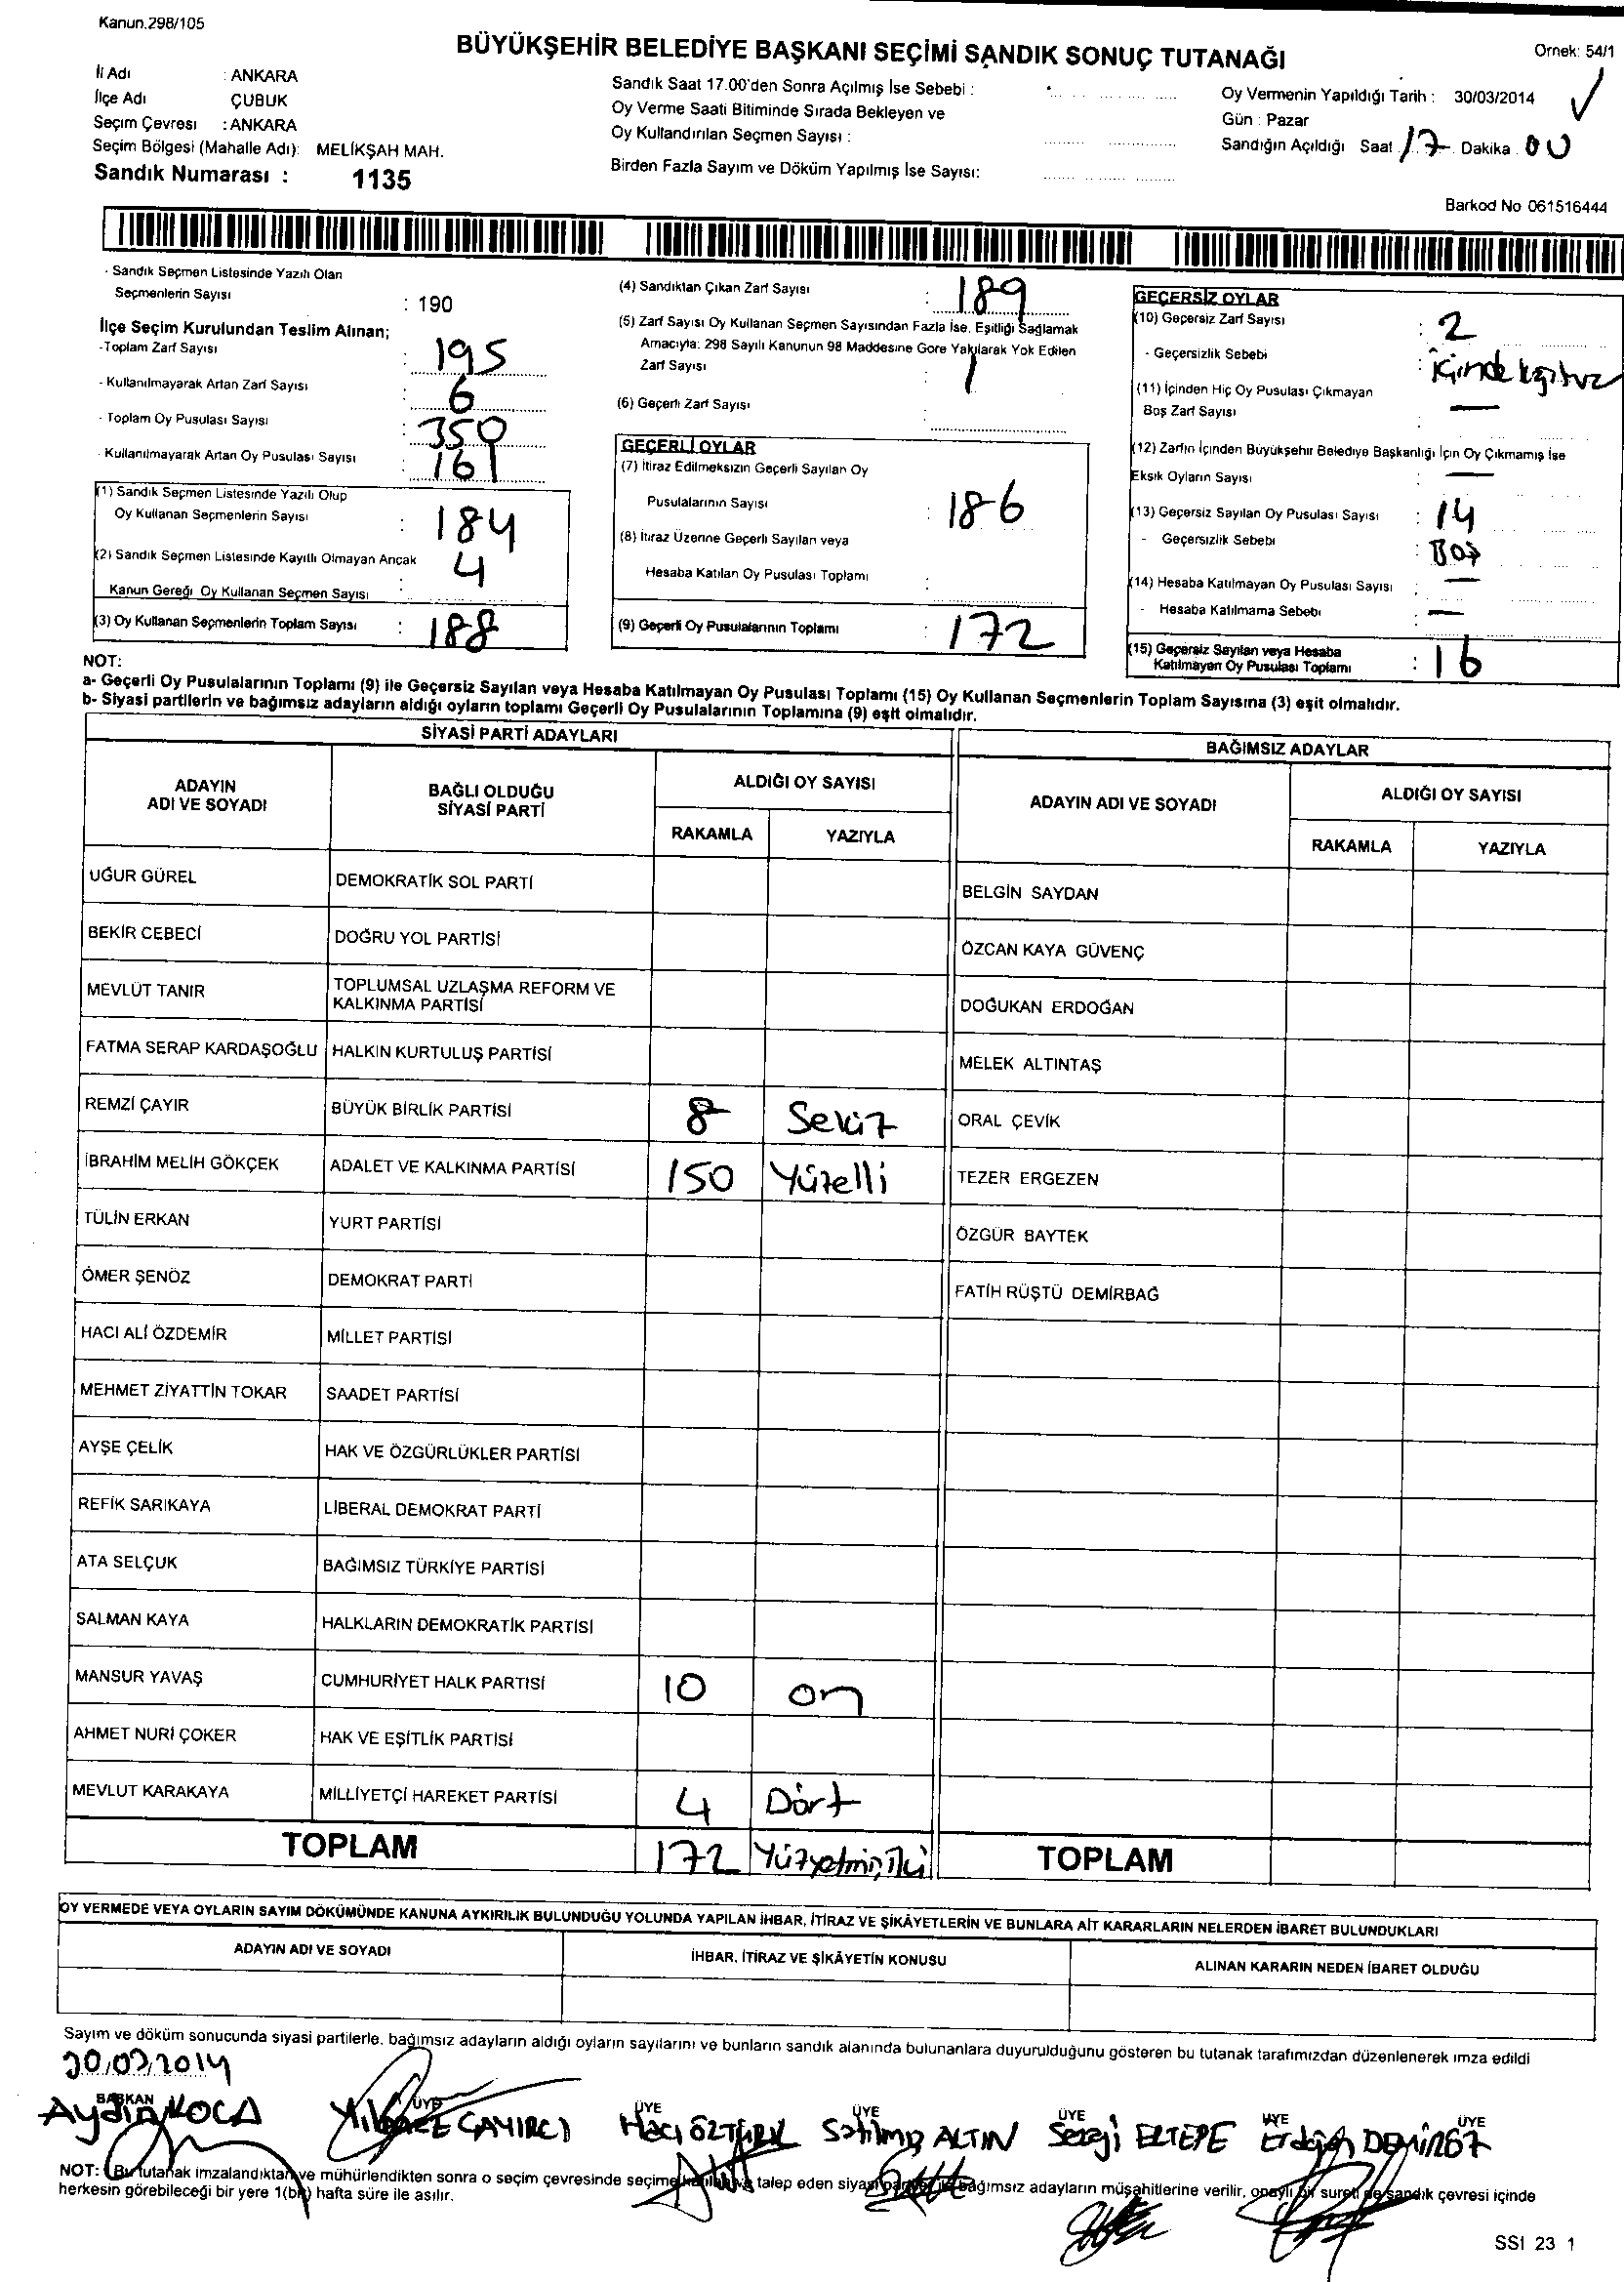 Kanun.298/105
BÜYÜKŞEHİR BELEDİYE BAŞKANI SEÇİMİ SANDIK SONUÇ TUTANAĞI
Örnek: 54/1
İl Adı : ANKARA
İlçe Adı ÇUBUK
Seçim Çevresi : ANKARA
Seçim Bölgesi (Mahalle Adı): MELİKŞAH MAH.
Sandık Numarası : 1135
Sandık Saat 17.00'den Sonra Açılmış İse Sebebi :
Oy Verme Saati Bitiminde Sırada Bekleyen ve
Oy Kullandırılan Seçmen Sayısı :
Birden Fazla Sayım ve Döküm Yapılmış İse Sayısı:
Oy Vermenin Yapıldığı Tarih : 30/03/2014
Gün : Pazar
Sandığın Açıldığı Saat 17 Dakika 00
Barkod No 061516444
- Sandık Seçmen Listesinde Yazılı Olan
Seçmenlerin Sayısı : 190
İlçe Seçim Kurulundan Teslim Alınan;
-Toplam Zarf Sayısı : 195
- Kullanılmayarak Artan Zarf Sayısı : 6
- Toplam Oy Pusulası Sayısı : 350
- Kullanılmayarak Artan Oy Pusulası Sayısı : 161
(1) Sandık Seçmen Listesinde Yazılı Olup
Oy Kullanan Seçmenlerin Sayısı : 184
(2) Sandık Seçmen Listesinde Kayıtlı Olmayan Ancak
Kanun Gereği Oy Kullanan Seçmen Sayısı : 4
(3) Oy Kullanan Seçmenlerin Toplam Sayısı : 188
(4) Sandıktan Çıkan Zarf Sayısı : 189
(5) Zarf Sayısı Oy Kullanan Seçmen Sayısından Fazla İse, Eşitliği Sağlamak
Amacıyla: 298 Sayılı Kanunun 98 Maddesine Göre Yakılarak Yok Edilen
Zarf Sayısı : 1
(6) Geçerli Zarf Sayısı :
GEÇERLİ OYLAR
(7) İtiraz Edilmeksizin Geçerli Sayılan Oy
Pusulalarının Sayısı : 186
(8) İtiraz Üzerine Geçerli Sayılan veya
Hesaba Katılan Oy Pusulası Toplamı :
(9) Geçerli Oy Pusulalarının Toplamı : 172
GEÇERSİZ OYLAR
(10) Geçersiz Zarf Sayısı : 2
- Geçersizlik Sebebi : içinde
(11) İçinden Hiç Oy Pusulası Çıkmayan
Boş Zarf Sayısı —
(12) Zarfın İçinden Büyükşehir Belediye Başkanlığı İçin Oy Çıkmamış İse
Eksik Oyların Sayısı : —
(13) Geçersiz Sayılan Oy Pusulası Sayısı : 14
- Geçersizlik Sebebi : Boş
(14) Hesaba Katılmayan Oy Pusulası Sayısı : —
- Hesaba Katılmama Sebebi : —
(15) Geçersiz Sayılan veya Hesaba
Katılmayan Oy Pusulası Toplamı : 16
NOT:
a- Geçerli Oy Pusulalarının Toplamı (9) ile Geçersiz Sayılan veya Hesaba Katılmayan Oy Pusulası Toplamı (15) Oy Kullanan Seçmenlerin Toplam Sayısına (3) eşit olmalıdır.
b- Siyasi partilerin ve bağımsız adayların aldığı oyların toplamı Geçerli Oy Pusulalarının Toplamına (9) eşit olmalıdır.
SİYASİ PARTİ ADAYLARI
BAĞIMSIZ ADAYLAR
ADAYIN ADI VE SOYADI
BAĞLI OLDUĞU SİYASİ PARTİ
ALDIĞI OY SAYISI
RAKAMLA YAZIYLA
ADAYIN ADI VE SOYADI
ALDIĞI OY SAYISI
RAKAMLA YAZIYLA
UĞUR GÜREL DEMOKRATİK SOL PARTİ BELGİN SAYDAN
BEKİR CEBECİ DOĞRU YOL PARTİSİ ÖZCAN KAYA GÜVENÇ
MEVLÜT TANIR TOPLUMSAL UZLAŞMA REFORM VE KALKINMA PARTİSİ DOĞUKAN ERDOĞAN
FATMA SERAP KARDAŞOĞLU HALKIN KURTULUŞ PARTİSİ MELEK ALTINTAŞ
REMZİ ÇAYIR BÜYÜK BİRLİK PARTİSİ 8 Sekiz ORAL ÇEVİK
İBRAHİM MELİH GÖKÇEK ADALET VE KALKINMA PARTİSİ 150 Yüzelli TEZER ERGEZEN
TÜLİN ERKAN YURT PARTİSİ ÖZGÜR BAYTEK
ÖMER ŞENÖZ DEMOKRAT PARTİ FATİH RÜŞTÜ DEMİRBAĞ
HACI ALİ ÖZDEMİR MİLLET PARTİSİ
MEHMET ZİYATTİN TOKAR SAADET PARTİSİ
AYŞE ÇELİK HAK VE ÖZGÜRLÜKLER PARTİSİ
REFİK SARIKAYA LİBERAL DEMOKRAT PARTİ
ATA SELÇUK BAĞIMSIZ TÜRKİYE PARTİSİ
SALMAN KAYA HALKLARIN DEMOKRATİK PARTİSİ
MANSUR YAVAŞ CUMHURİYET HALK PARTİSİ 10 on
AHMET NURİ ÇOKER HAK VE EŞİTLİK PARTİSİ
MEVLUT KARAKAYA MİLLİYETÇİ HAREKET PARTİSİ 4 Dört
TOPLAM 172 Yüzyetmişiki TOPLAM
OY VERMEDE VEYA OYLARIN SAYIM DÖKÜMÜNDE KANUNA AYKIRILIK BULUNDUĞU YOLUNDA YAPILAN İHBAR, İTİRAZ VE ŞİKÂYETLERİN VE BUNLARA AİT KARARLARIN NELERDEN İBARET BULUNDUKLARI
ADAYIN ADI VE SOYADI İHBAR, İTİRAZ VE ŞİKÂYETİN KONUSU ALINAN KARARIN NEDEN İBARET OLDUĞU
Sayım ve döküm sonucunda siyasi partilerle, bağımsız adayların aldığı oyların sayılarını ve bunların sandık alanında bulunanlara duyurulduğunu gösteren bu tutanak tarafımızdan düzenlenerek imza edildi
30.03.2014
BAŞKAN ÜYE ÜYE ÜYE ÜYE ÜYE ÜYE
Aydın KOCA ÇAYIRCI Hacı ÖZTÜRK Satılmış ALTIN ELTEPE Erdoğan DEMİRÖZ
NOT: Bu tutanak imzalandıktan ve mühürlendikten sonra o seçim çevresinde seçime katılan ve talep eden siyasi partiler ile bağımsız adayların müşahitlerine verilir, onaylı bir sureti de sandık çevresi içinde
herkesin görebileceği bir yere 1(bir) hafta süre ile asılır.
SSİ 23 1